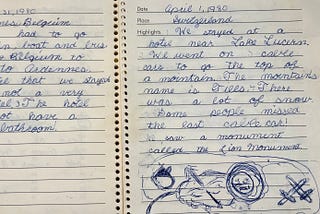 31, 1980
Belgium
had to go
boat and bus
Belgium to
to Ardennes.
that we stayed
not a very
The hotel
not have a
bathroom.
Date April 1, 1980
Place Switzerland
Highlights We stayed at a
hotel near Lake Lucern.
We went on cable
cars to go the top of
a mountain. The mountains
name is Titles. There
was a lot of snow.
Some people missed
the last cable car!
We saw a monument
called the Lion Monument.